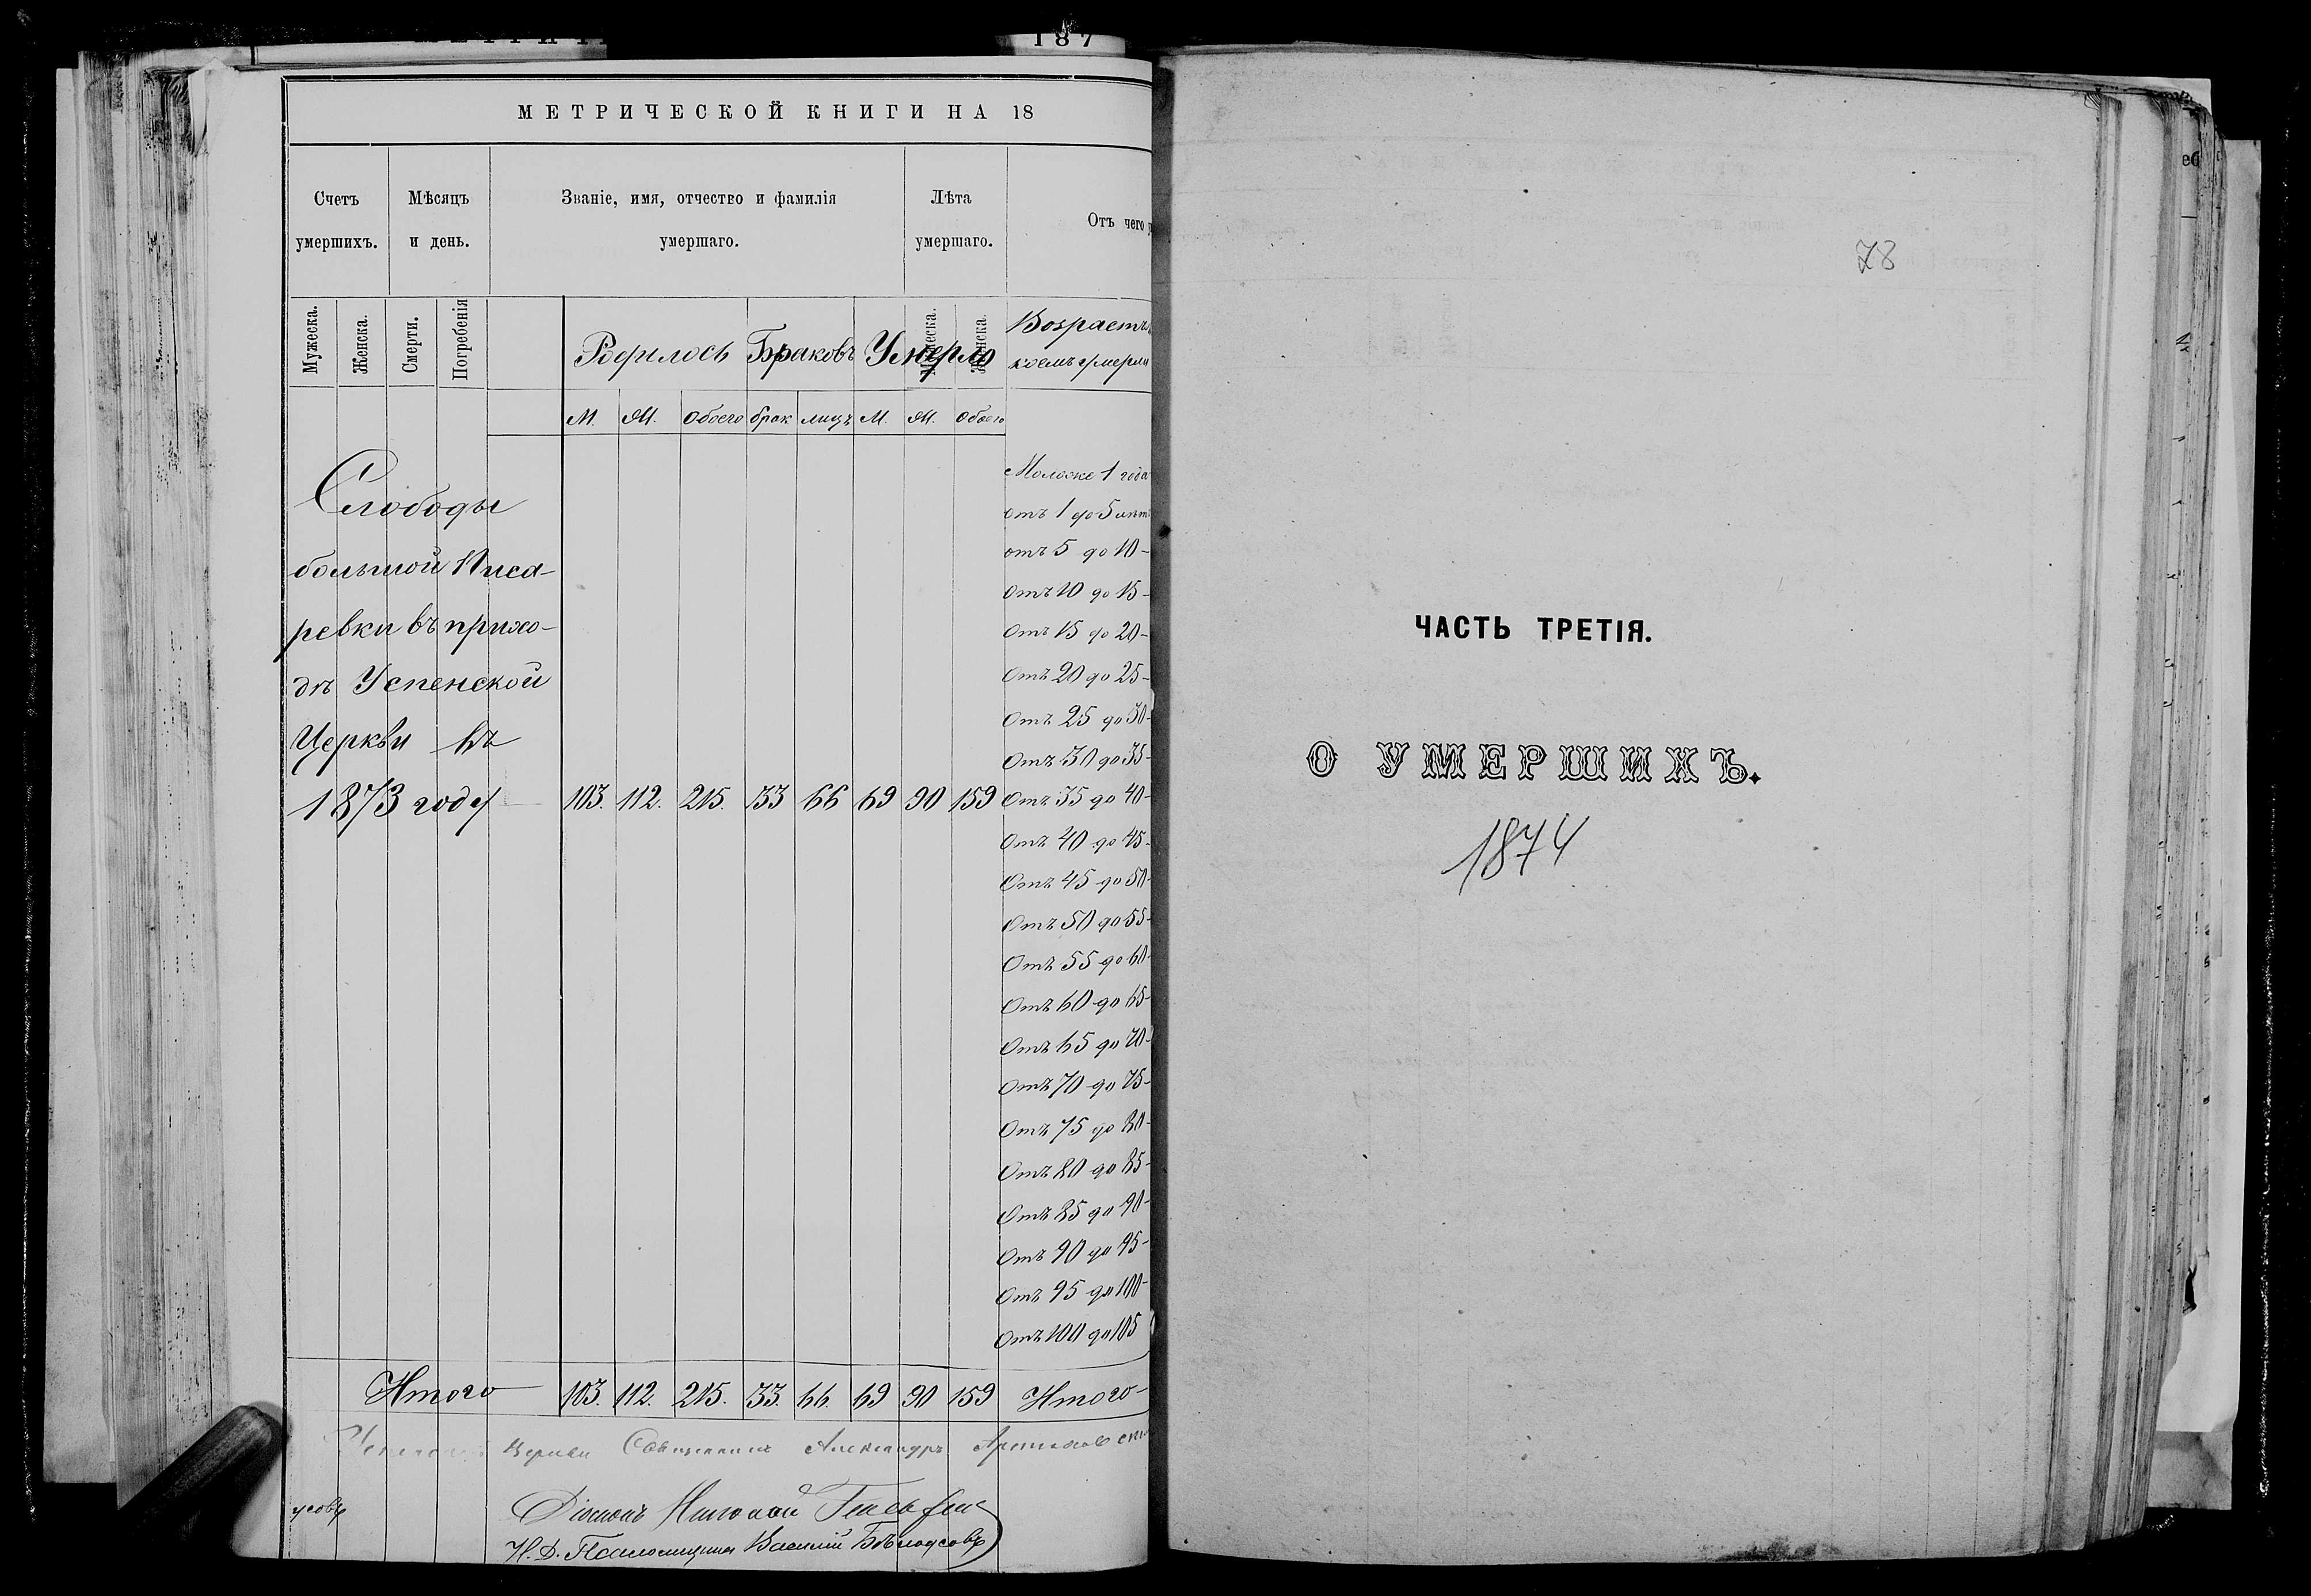 187
МЕТРИЧЕСКОЙ КНИГИ НА 18
Счетъ умершихъ.
Мѣсяцъ и день.
Званіе, имя, отчество и фамилія умершаго.
Лѣта умершаго.
Отъ чего
Мужеска. Женска. Смерти. Погребенія
Родилось Браковъ Умерло
Мужеска. Женска.
Возрастъ
коемъ умерли
М. Ж. Обоего брак лицъ М. Ж. Обоего
Моложе 1 года
Слободы
отъ 1 до 5 лѣт
отъ 5 до 10 -
большой Писа-
отъ 10 до 15 -
ревки въ прихо-
отъ 15 до 20 -
дѣ Успенской
отъ 20 до 25 -
отъ 25 до 30 -
Церкви въ
отъ 30 до 35 -
1873 году 103. 112. 215. 33 66 69 90 159 Отъ 35 до 40 -
отъ 40 до 45 -
Отъ 45 до 50 -
Отъ 50 до 55 -
Отъ 55 до 60 -
Отъ 60 до 65 -
Отъ 65 до 70 -
Отъ 70 до 75 -
Отъ 75 до 80 -
Отъ 80 до 85 -
Отъ 85 до 90 -
Отъ 90 до 95 -
Отъ 95 до 100 -
Отъ 100 до 105
Итого 103. 112. 215. 33. 66. 69 90 159 Итого -
Церкви Священникъ Александръ
Діаконъ Николай
усовъ
И. Д. Псаломщика Василій Бѣлоусовъ
78
ЧАСТЬ ТРЕТІЯ.
О УМЕРШИХЪ.
1874